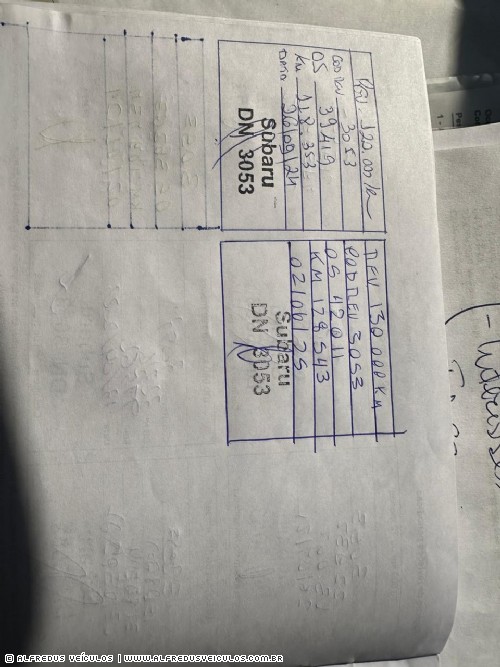 REV 120.000 km
COD REV 3053
OS 39419
KM 118.353
DATA 26/09/24
Subaru
DN 3053
REV 130.000 KM
COD REV 3053
OS 42011
KM 128543
02/06/25
Subaru
DN 3053
© ALFREDUS VEÍCULOS | WWW.ALFREDUSVEICULOS.COM.BR